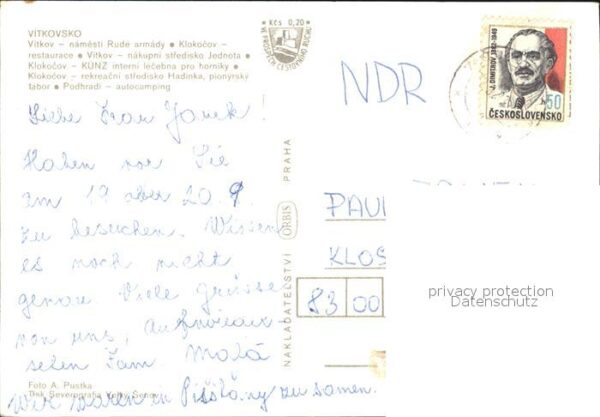 VÍTKOVSKO
Vítkov – náměstí Rudé armády, • Klokočov –
restaurace • Vítkov – nákupní středisko Jednota •
Klokočov – KÚNZ interní léčebna pro horníky •
Klokočov – rekreační středisko Hadinka, pionýrský
tábor • Podhradí – autocamping
Kčs 0,20
VE PROSPĚCH CESTOVNÍHO RUCHU
J. DIMITROV 1882-1949
50
ČESKOSLOVENSKO
NDR
Liebe Frau Janek!
Haben vor Sie
am 19 aber 20. 9
zu besuchen. Wissen
es noch nicht
genau. Viele Grüsse
von uns,
sehen Fam. Malá
Wir waren in Pišťány zusamen.
NAKLADATELSTVÍ ORBIS PRAHA
PAUL
KLOS
83 00
privacy protection
Datenschutz
Foto A. Pustka
Tisk Severografia Velký Šenov